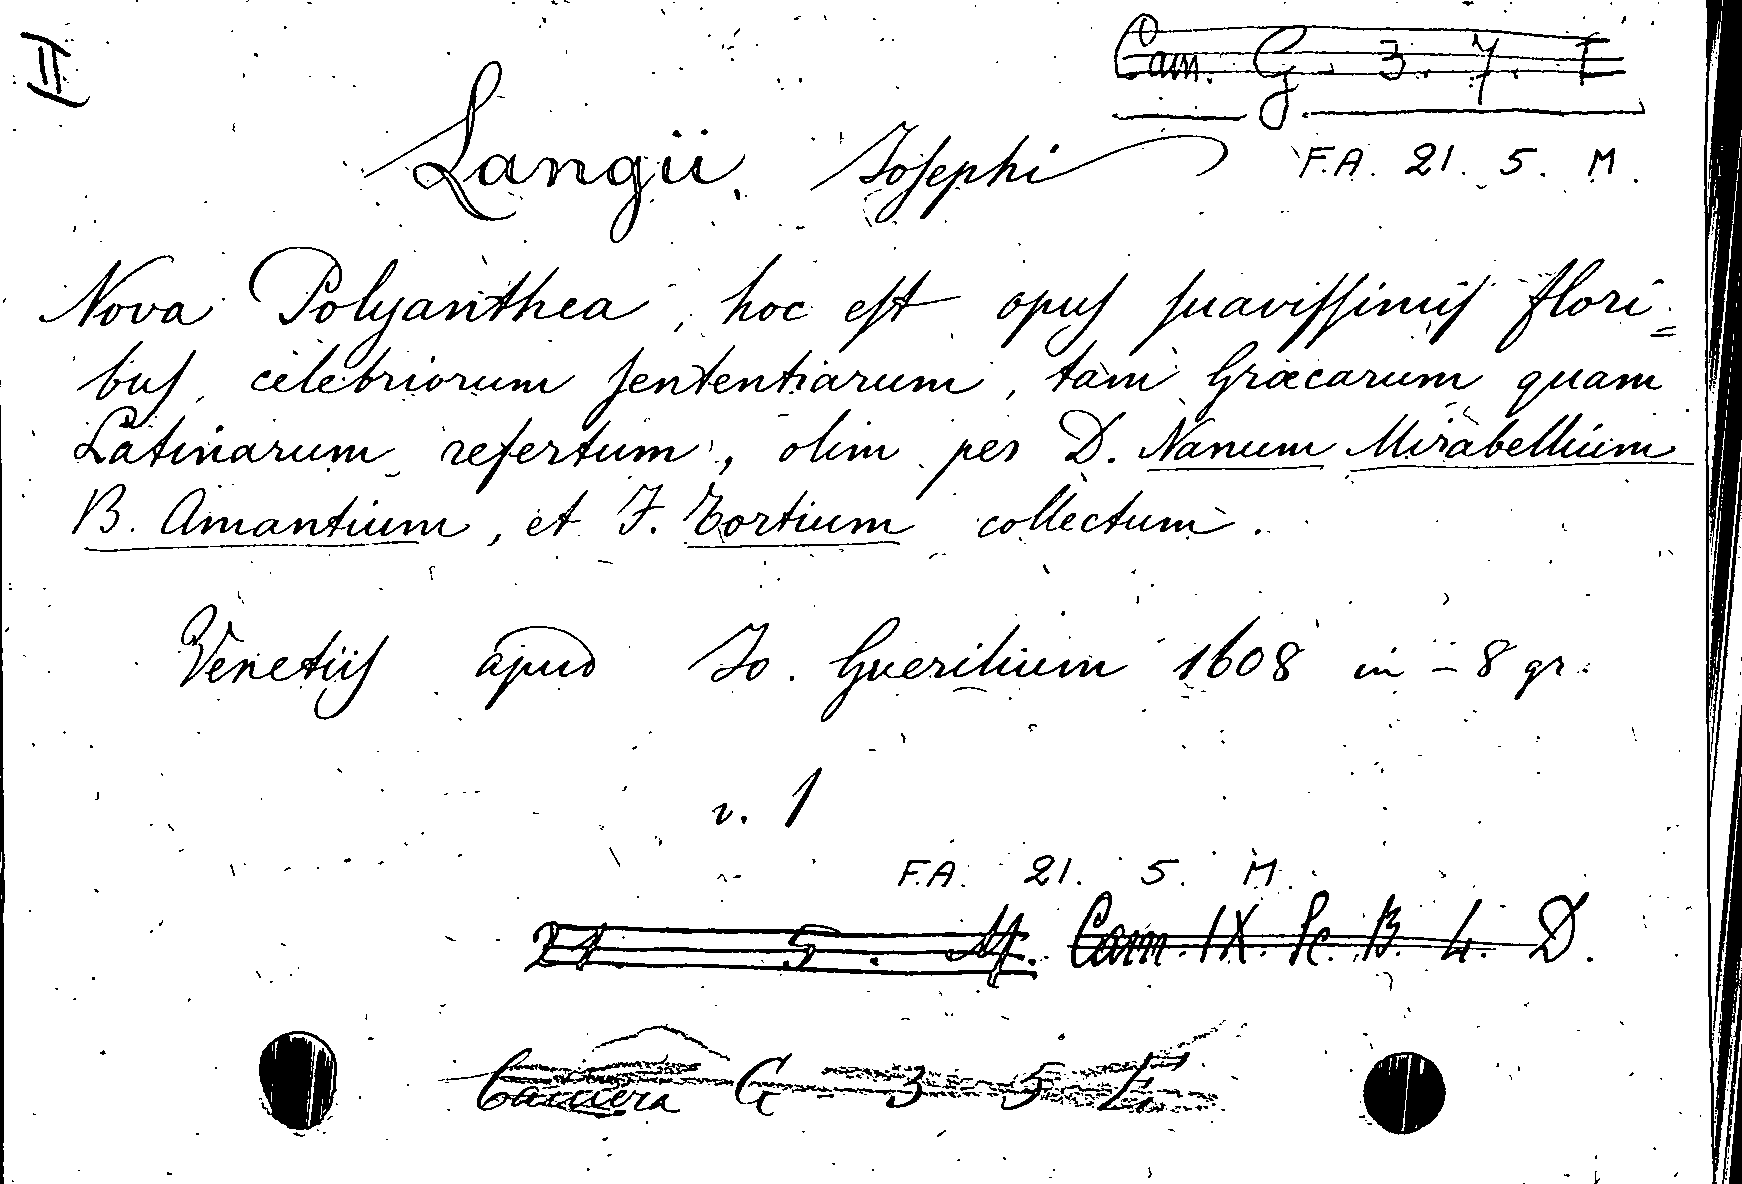 II
Cam. G. 3. 7. E
Langii, Josephi
F.A. 21. 5. M.
Nova Polyanthea, hoc est opus suavissimis flori=
bus celebriorum sententiarum, tam Græcarum quam
Latinarum refertum, olim per D. Nanum Mirabellium
B. Amantium, et F. Tortium collectum.
Venetiis apud Jo. Guerilium 1608 in-8 gr.
v. 1
F.A. 21. 5. M.
21. 5. M. Cam. IX. Sc. B. 4. D.
Camera G 3 5 E